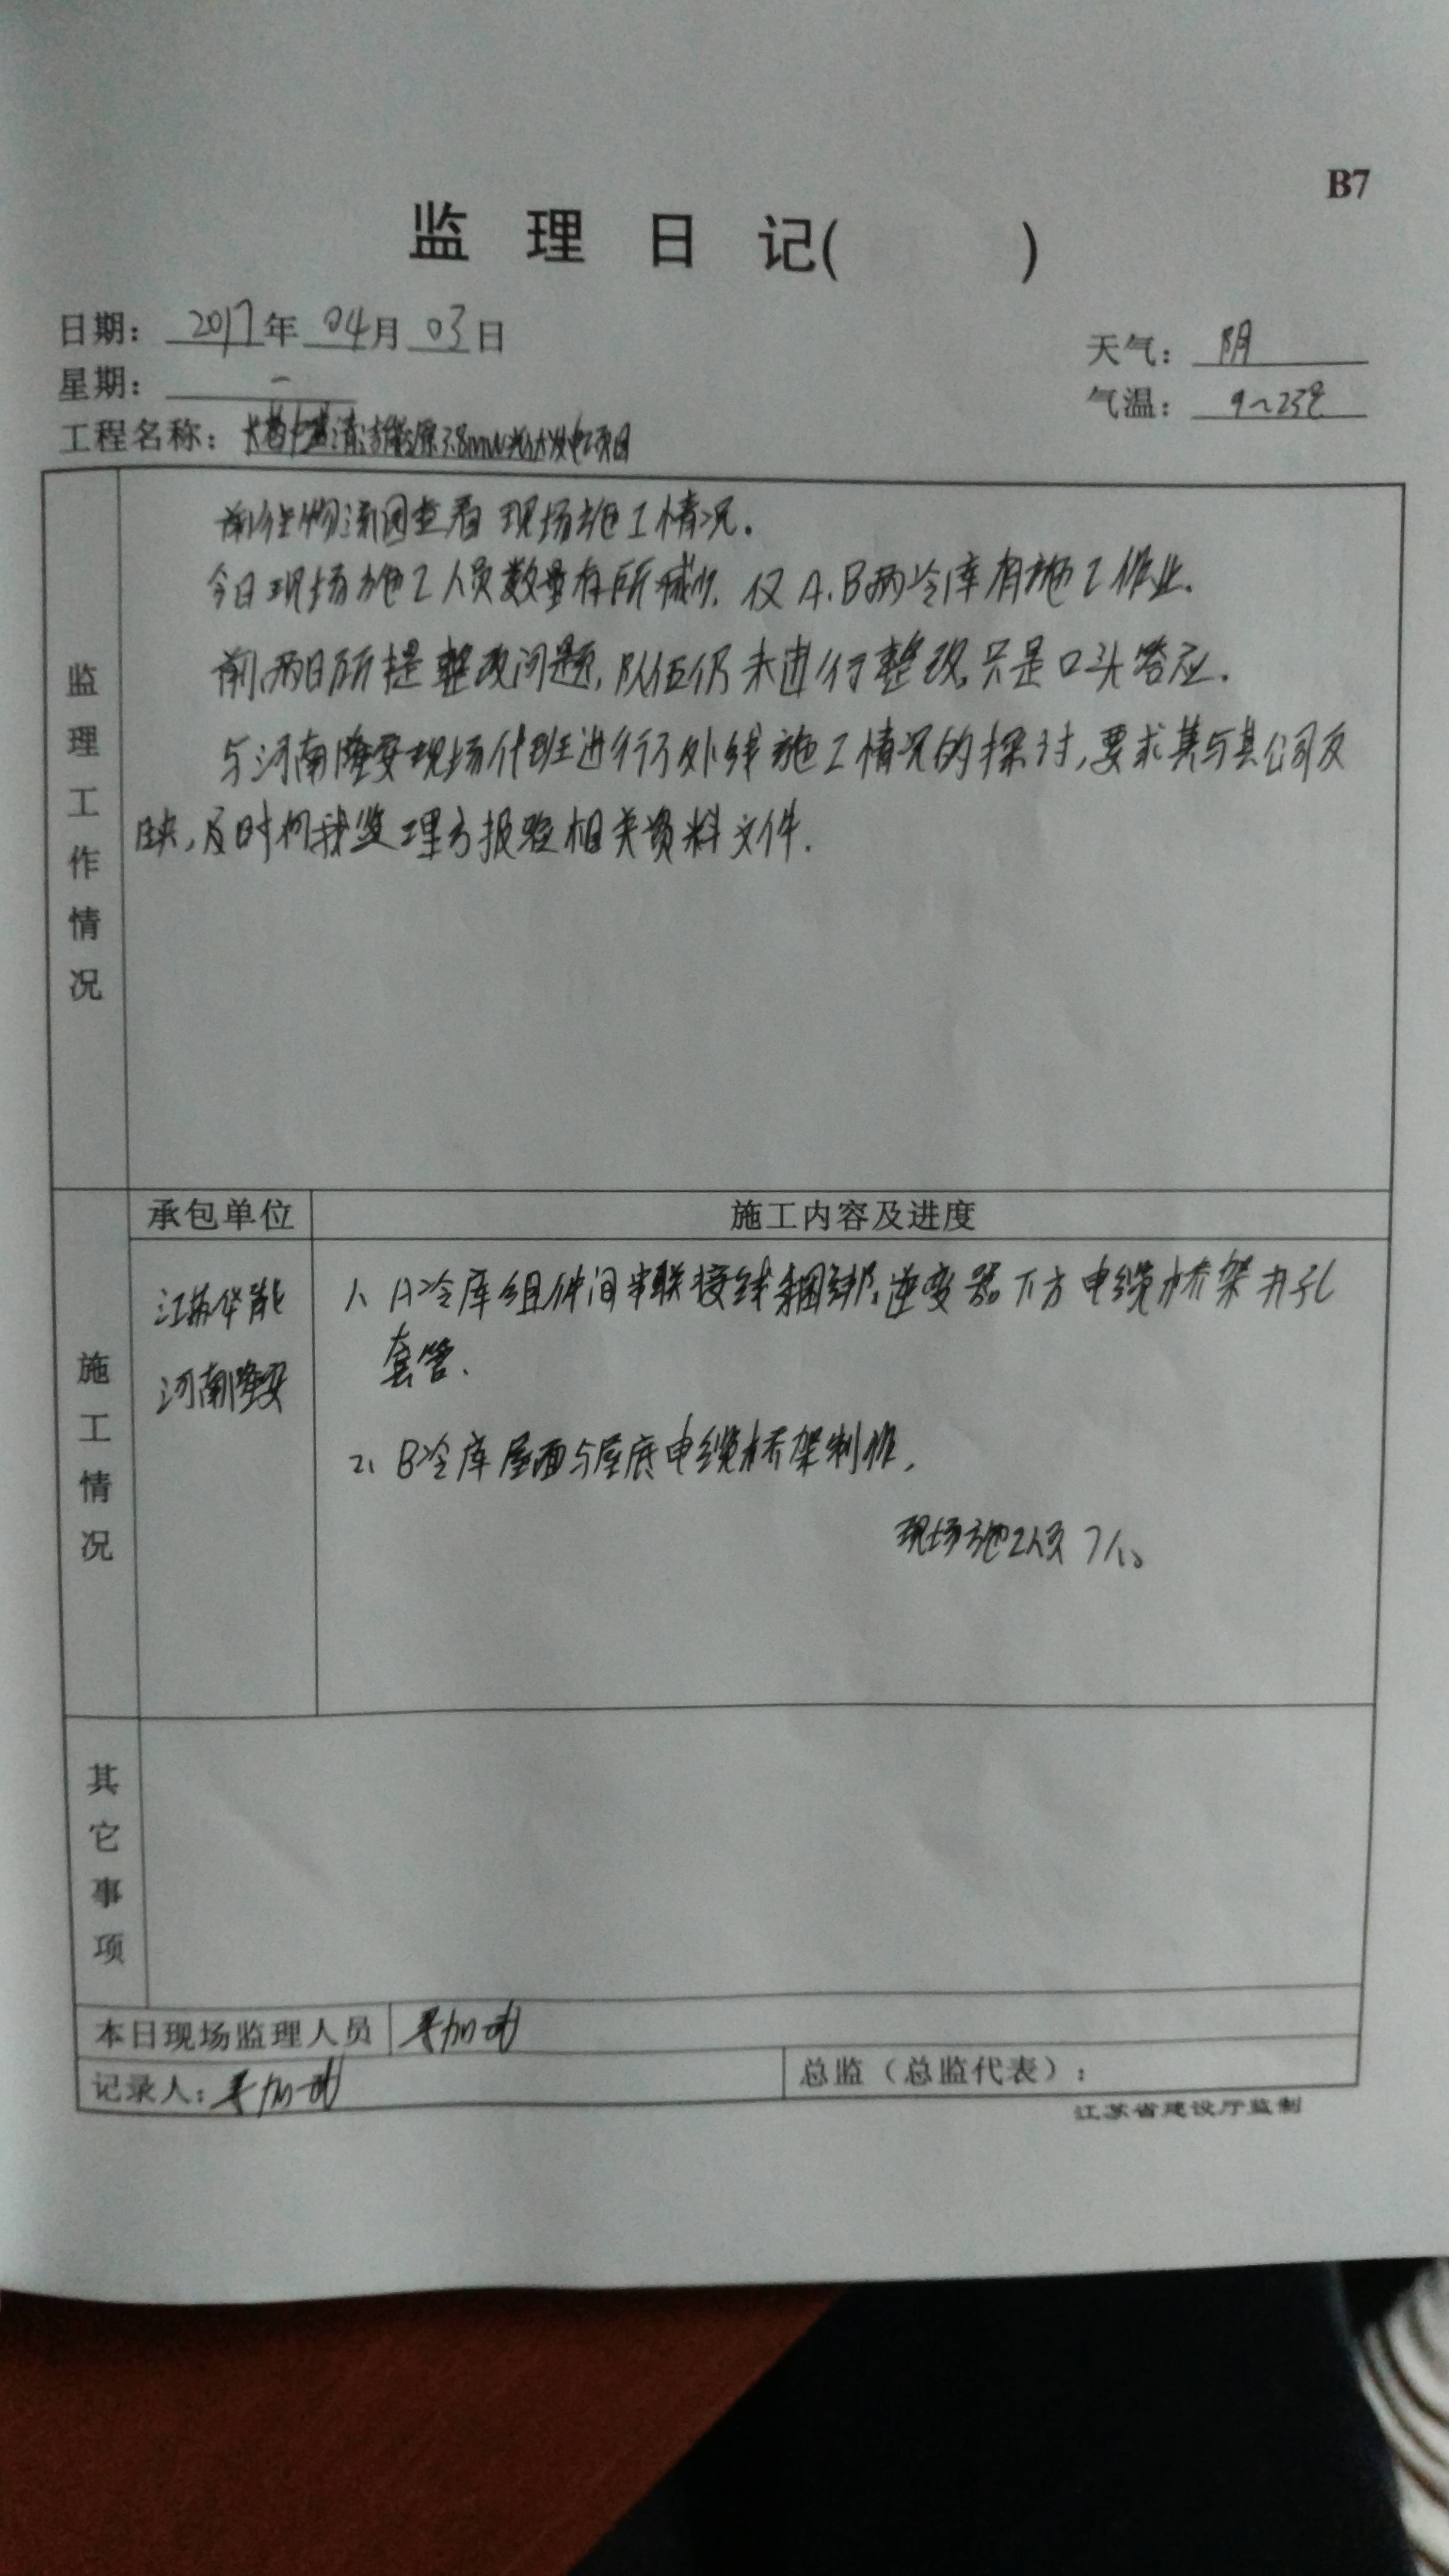 B7
监 理 日 记( )
日期: 2017年 04月 03日
天气: 阴
星期: 一
气温: 9~23℃
工程名称: 清洁能源3.8mw光伏发电项目
监理工作情况
前往物流园查看现场施工情况.
今日现场施工人员数量有所减少. 仅A.B两冷库有施工作业.
前两日所提整改问题,队伍仍未进行整改,只是口头答应.
与河南隆安现场代班进行了外线施工情况的探讨,要求其与其公司反
映,及时向我监理方报验相关资料文件.
施工情况
承包单位
施工内容及进度
江苏华能
河南隆安
1、A冷库组件间串联接线捆绑,逆变器下方电缆桥架开孔
套管.
2、B冷库屋面与屋底电缆桥架制作,
现场施工人员7人。
其它事项
本日现场监理人员
记录人:
总监（总监代表）:
江苏省建设厅监制